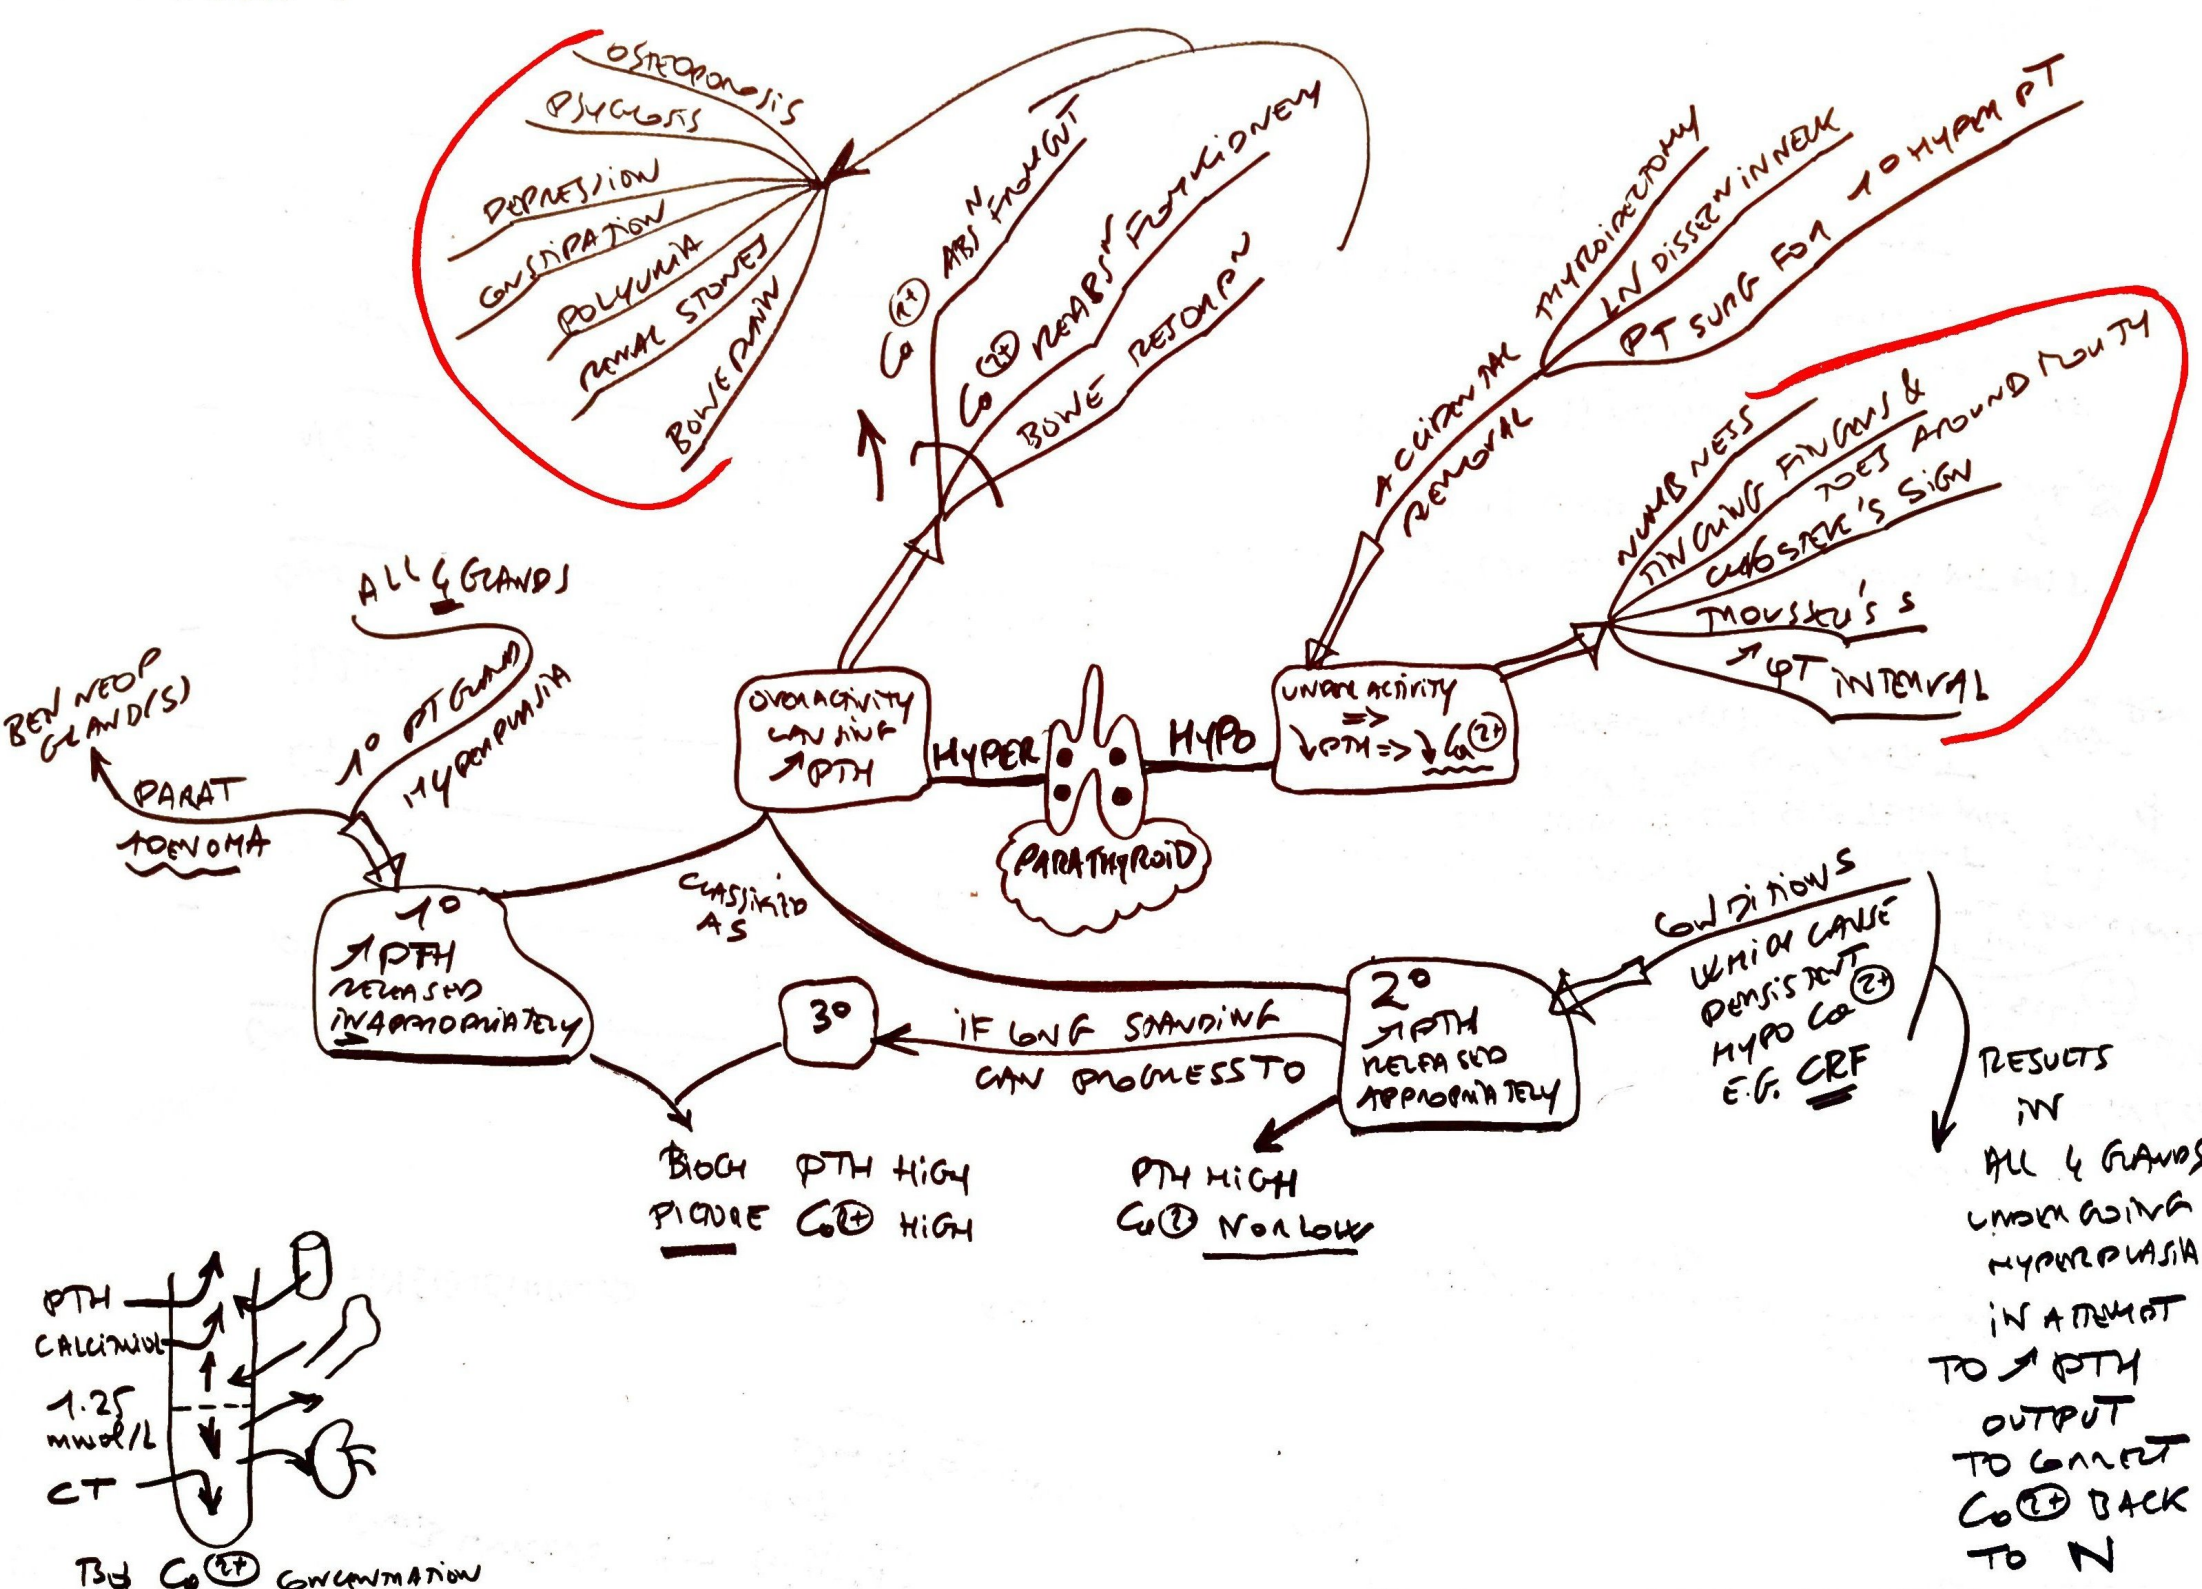 OSTEOPOROSIS
PSYCHOSIS
DEPRESSION
CONSTIPATION
POLYURIA
RENAL STONES
BONE PAIN
Ca 2+ ABS N FROM GUT
Ca 2+ REABS N FROM KIDNEY
BONE RESORP N
THYROIDECTOMY
LN DISSEC N IN NECK
PT SURG FOR 1° HYPER PT
ACCIDENTAL
REMOVAL
NUMBNESS
TINGLING FINGERS &
TOES AROUND MOUTH
SIGN
↗ QT INTERVAL
ALL 4 GLANDS
1° PT GLAND
HYPERPLASIA
BEN NEOP
GLAND(S)
PARAT
ADENOMA
OVERACTIVITY
CAUSING
↗ PTH
HYPER
HYPO
UNDERACTIVITY
=>
↓ PTH => ↓ Ca 2+
PARATHYROID
CLASSIFIED
AS
1°
↗ PTH
RELEASED
INAPPROPRIATELY
3°
IF LONG STANDING
CAN PROGRESS TO
2°
↗ PTH
RELEASED
APPROPRIATELY
CONDITIONS
WHICH CAUSE
PERSISTENT
HYPO Ca 2+
E.G. CRF
RESULTS
IN
ALL 4 GLANDS
UNDERGOING
HYPERPLASIA
IN ATTEMPT
TO ↗ PTH
OUTPUT
TO CORRECT
Ca 2+ BACK
TO N
BIOCH PTH HIGH
PICTURE Ca 2+ HIGH
PTH HIGH
Ca 2+ N OR LOW
PTH
CALCITRIOL
1.25
mmol/L
CT
Ca 2+ CONCENTRATION